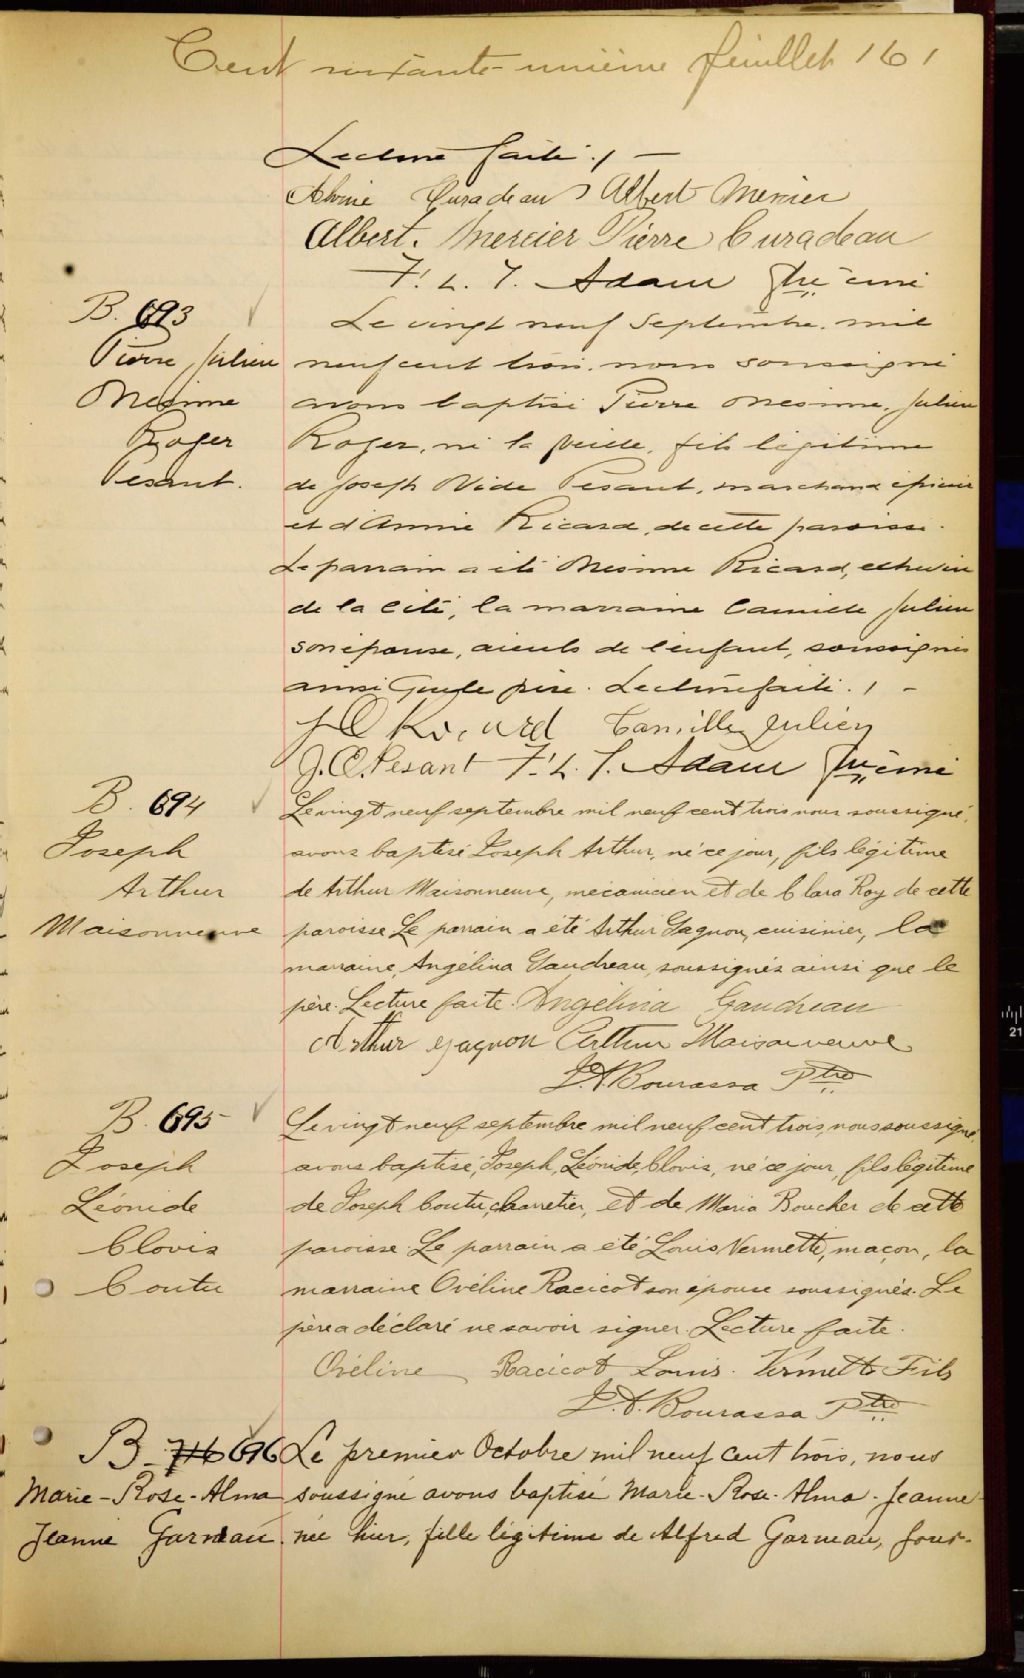 Cent soixante-unième feuillet 161
Lecture faite ./ —
Curadeau Albert Mercier
Albert. Mercier Pierre Curadeau
F. L. T. Adam ptre curé
B. 693
Pierre Julien
Onésime
Roger
Pesant.
Le vingt neuf Septembre mil
neuf cent trois, nous soussigné
avons baptisé Pierre Onésime, Julien
Roger, né la veille, fils légitime
de Joseph Ovide Pesant, marchand épicier
et d'Annie Ricard, de cette paroisse.
Le parrain a été Onésime Ricard, échevin
de la Cité, la marraine Camille Julien
son épouse, aieuls de l'enfant, soussignés
ainsi que le père. Lecture faite . / -
J O Ricard Camille Julien
J. O. Pesant F. L. T. Adam ptre curé
B. 694
Joseph
Arthur
Maisonneuve
Le vingt neuf septembre mil neuf cent trois nous soussigné,
avons baptisé Joseph Arthur, né ce jour, fils légitime
de Arthur Maisonneuve, mécanicien et de Clara Roy de cette
paroisse Le parrain a été Arthur Gagnon, cuisinier, la
marraine, Angélina Gaudreau, soussignés ainsi que le
père. Lecture faite. Angélina Gaudreau
Arthur Gagnon Arthur Maisonneuve
Bourassa Ptre
B. 695
Joseph
Léonide
Clovis
Coutu
Le vingt neuf septembre mil neuf cent trois, nous soussigné,
avons baptisé, Joseph, Léonide, Clovis, né ce jour, fils légitime
de Joseph Coutu, charretier, et de Maria Boucher de cette
paroisse. Le parrain a été Louis Vermette, maçon, la
marraine Ovéline Racicot son épouse soussignés. Le
père a déclaré ne savoir signer. Lecture faite.
Ovéline Racicot Louis. Vermette Fils
Bourassa Ptre
B. 716 696
Marie-Rose-Alma
Jeanne Garneau.
Le premier Octobre mil neuf cent trois, nous
soussigné avons baptisé Marie-Rose-Alma-Jeanne
née hier, fille légitime de Alfred Garneau, four-
21